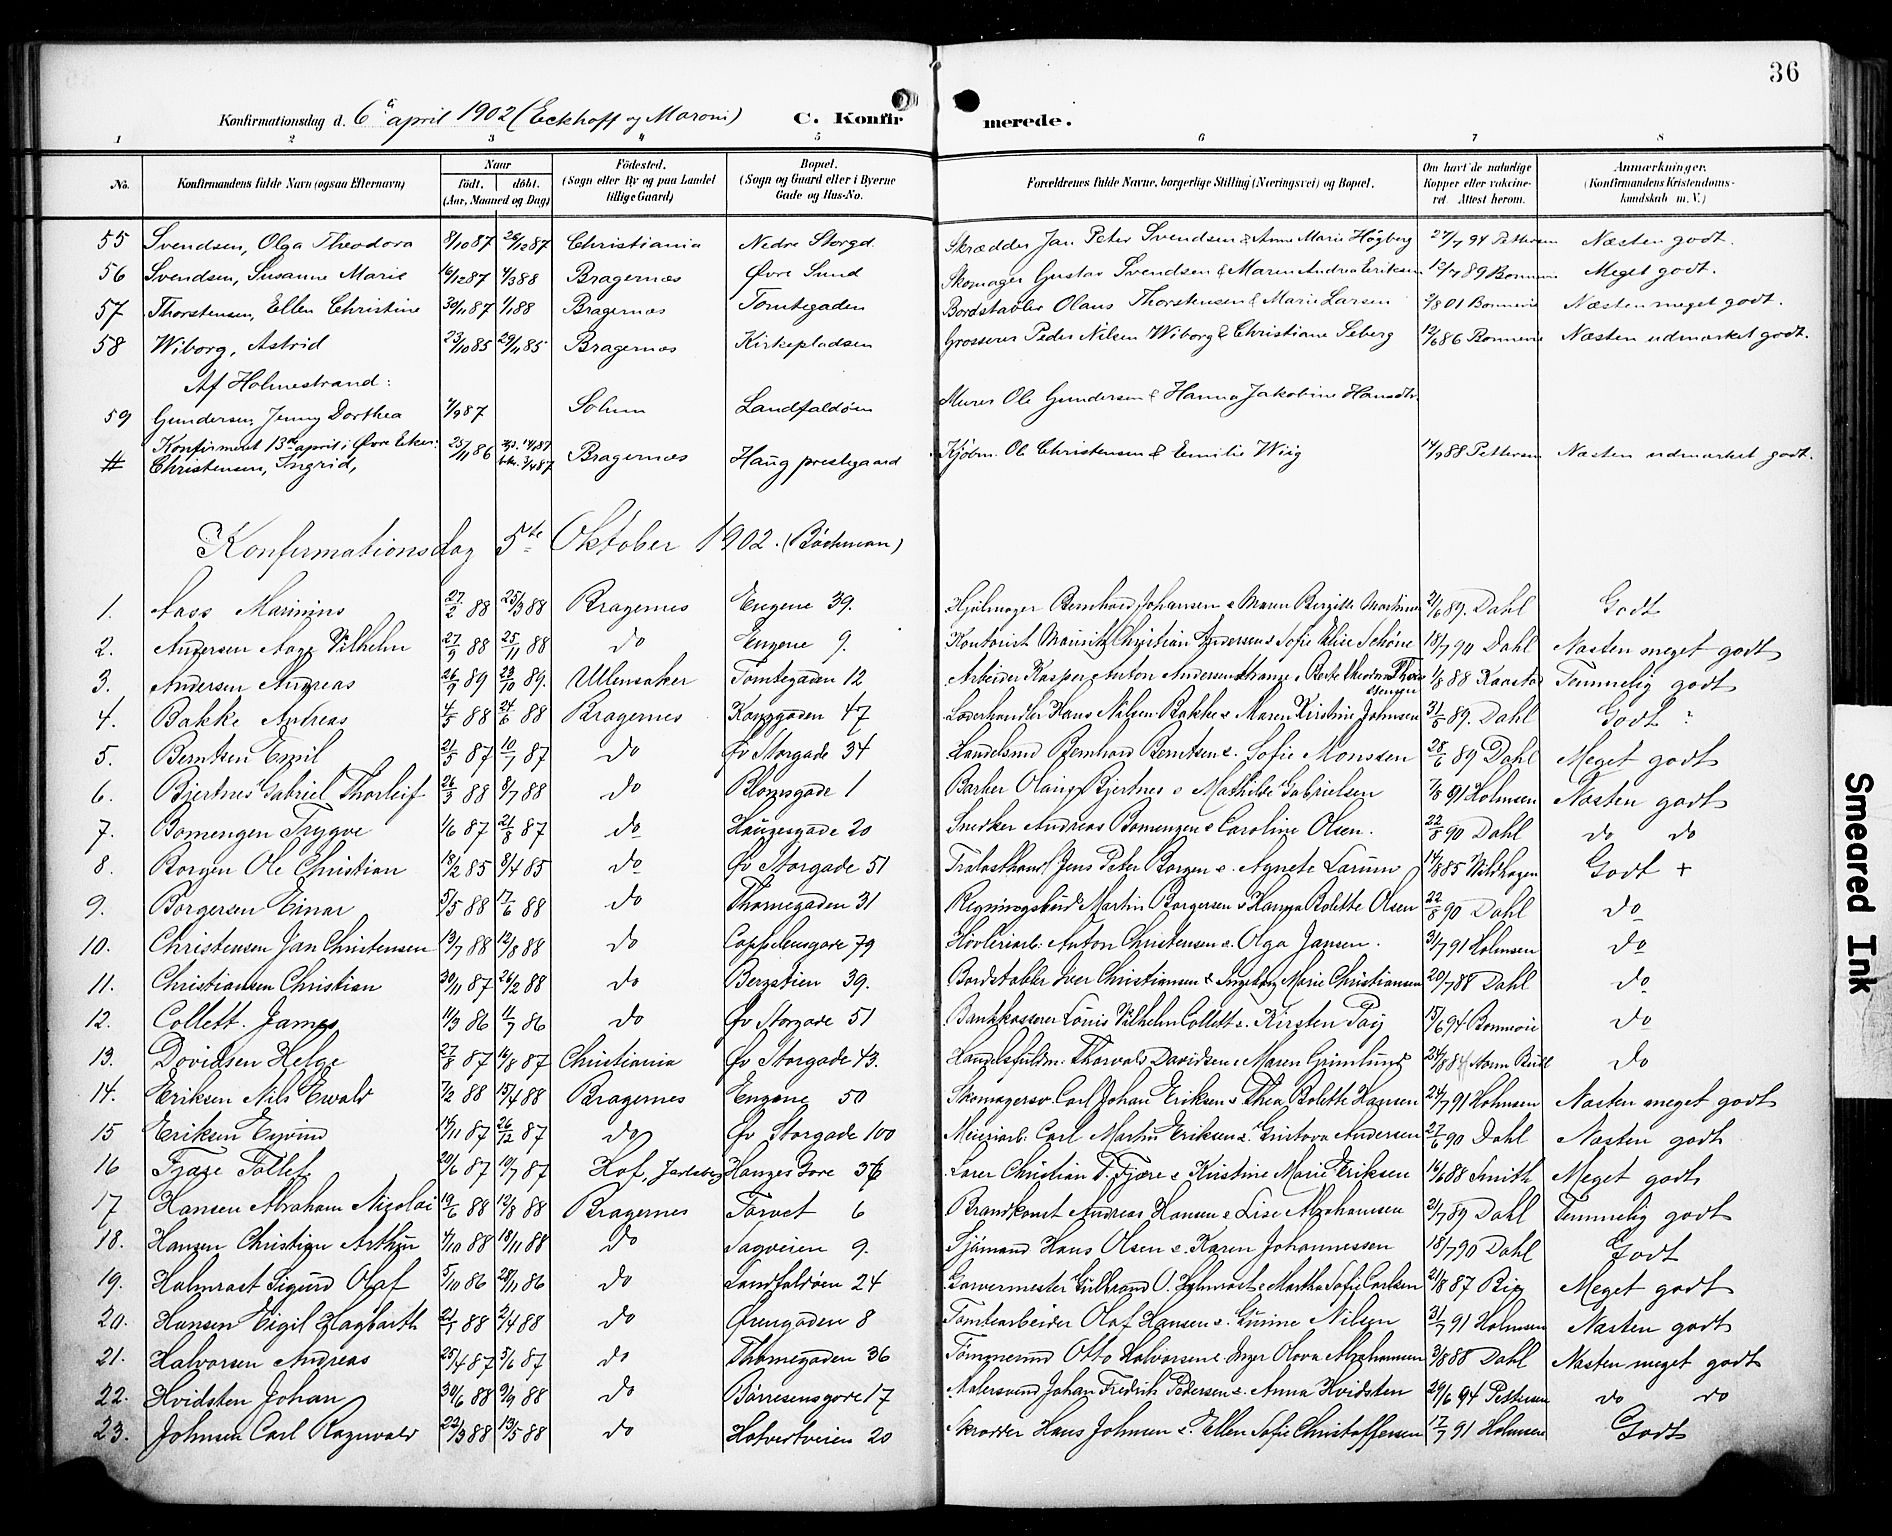 36
Konfirmationsdag d. 6 april 1902 (Eckhoff og Maroni) C. Konfirmerede.
1 2 3 4 5 6 7 8
No. Konfirmandens fulde Navn (ogsaa Efternavn) Naar født. døbt. (Aar, Maaned og Dag) Fødested. (Sogn eller By og paa Landet tillige Gaard) Bopæl. (Sogn og Gaard eller i Byerne Gade og Hus-No. Forældrenes fulde Navne, borgerlige Stilling (Næringsvei) og Bopæl. Om havt de naturlige Kopper eller vakcineret. Attest herom. Anmærkninger. (Konfirmandens Kristendomskundskab m. V.)
55 Svendsen, Olga Theodora 8/10 87 26/12 87 Christiania Nedre Storgd. Skrædder Jan Peter Svendsen & Anne Marie Høgberg 27/7 94 Pettersen Næsten godt.
56 Svendsen, Susanne Marie 16/12 87 4/3 88 Bragernæs Øvre Sund Skomager Gustav Svendsen & Maren Andrea Eriksen 12/7 89 Bonnevie Meget godt.
57 Thorstensen, Ellen Christine 30/11 87 1/1 88 Bragernæs Tomtegaden Bordstabler Olaus Thorstensen & Marie Larsen 2/8 01 Bonnevie Næsten meget godt.
58 Wiborg, Astrid 23/10 85 29/11 85 Bragernæs Kirkepladsen Grosserer Peder Nilsen Wiborg & Christiane Seberg 12/6 86 Bonnevie Næsten udmærket godt.
Af Holmestrand:
59 Gundersen, Jenny Dorthea 7/9 87 Solum Landfaldøen Murer Ole Gundersen & Hanna Jakobine Hansdtr.
Konfirmeret 13de april i Øvre Eker:
# Christensen, Ingrid, 25/11 86 Bragernæs Haug prestegaard Kjøbm. Ole Christensen & Emilie Wiig 14/9 88 Pettersen Næsten udmærket godt.
Konfirmationsdag 5te Oktober 1902. (Bächman)
1. Aass Marinius 27/2 88 25/3 88 Bragernes Engene 39. Hjulmager Bernhard Johansen & Maren Birgitte Martinsen 21/6 89. Dahl Godt
2. Andersen Aage Vilhelm 27/9 88 25/11 88 do Engene 9. Kontorist Mauritz Christian Andersen & Sofie Elise Schöne 18/7 90 Dahl Næsten meget godt
3. Andersen Andreas 26/9 89 23/10 89. Ullensaker Tomtegaden 12 Arbeider Kasper Anton Andersen & Berte Theodora Thorstensen 1/8 88 Kaastad Temmelig godt
4. Bakke Andreas 4/5 88 24/6 88 Bragernes Konggaden 47 Læderhandler Hans Nilsen Bakke & Maren Kirstine Johnsen 31/5 89. Dahl Godt
5. Berntsen Emil 21/5 87 10/7 87 do Øv Storgade 34 Handelsmd Bernhard Berntsen & Sofie Monssen 28/6 89 Dahl Meget godt
6. Bjertnes Gabriel Thorleif 26/3 88 8/7 88 do Blomsgade 1 Barber Olaus Bjertnes & Mathilde Gabrielsen 7/8 91 Holmsen Næsten godt
7. Bomengen Trygve 1/6 87 21/8 87 do Haugesgade 20 Snedker Andreas Bomengen & Caroline Olsen. 22/8 90 Dahl do do
8. Borgen Ole Christian 18/2 85 8/4 85 do Øv Storgade 51 Trælasthandl Jens Peter Borgen & Agnete Larum 14/8 85 Wildhagen Godt +
9. Borgersen Einar 3/5 88 17/6 88 do Thornegaden 31 Regningsbud Martin Borgersen & Hanna Bolette Olsen 22/8 90 Dahl do
10. Christensen Jan Christensen 13/7 88 12/8 88 do Cappelensgade 79 Høvleriarb. Anton Christensen & Olga Jansen. 31/7 91 Holmsen do
11. Christiansen Christian 30/11 87 26/2 88 do Bergstien 39. Bordstabler Iver Christiansen & Ingeborg Marie Christiansen 20/7 88 Dahl do
12. Collett. James 11/3 86 11/7 86 do Øv Storgade 51 Bankkasserer Louis Vilhelm Collett & Kirsten Paij 15/6 94 Bonnevie do
13. Davidsen Helge 27/8 87 14/8 87 Christiania Øv Storgade 43. Handelsfuldm. Thorvald Davidsen & Maren Grimlund do
14. Eriksen Nils Ewald 7/2 88 15/4 88 Bragernes Engene 50 Skomagersv. Carl Johan Eriksen & Thea Bolette Hansen 24/7 91 Holmsen Næsten meget godt
15 Eriksen Eyvind 14/11 87 26/12 87 do Øv Storgade 100 Carl Martin Eriksen & Gustava Andersen 27/6 90 Dahl Næsten godt
16 Fjære Tollef 20/6 87 10/7 87 Hof, Jarlsberg Hauges Gade 36 Lærer Christian T. Fjære & Kirstine Marie Eriksen 16/6 88 Smith Meget godt
17 Hansen Abraham Nicolai 19/6 88 12/8 88 Bragernes Torvet 6 Brandkonst Andreas Hansen & Lise Abrahamsen 2/7 89 Dahl Temmelig godt
18. Hansen Christian Arthur 4/10 88 18/11 88 do Sagveien 9. Sjømand Hans Olsen & Karen Johannessen 18/7 90 Dahl Godt
19. Halmrast Sigurd Olaf 5/10 86 28/11 86 do Landfaldøen 24 Garvermester Gulbrand O. Halmrast & Martha Sofie Carlsen 21/8 87 Big Meget godt
20. Hansen Eigil Hagbarth 21/1 88 2/4 88 do Ørengaden 8 Tomtearbeider Olaf Hansen & Gurine Nilsen 31/7 91 Holmsen Næsten godt
21. Halvorsen Andreas 25/4 87 5/6 87 do Thornegaden 36 Tømmermd Otto Halvorsen & Inger Olava Abrahamsen 3/8 88 Dahl Næsten meget godt
22. Hvidsten Johan 30/6 88 9/9 88 do Børresensgade 17 Malersvend Johan Fredrik Pedersen & Anna Hvidsten 29/6 94 Pettersen do do
23. Johnsen Carl Ragnvald 22/3 88 13/5 88 do Hotvertveien 20 Skrædder Hans Johnsen & Ellen Sofie Christoffersen 17/7 91 Holmsen Godt
Smeared Ink